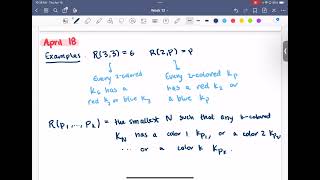 Week 13
April 18
Examples R(3,3) = 6 R(2,p) = p
Every 2-colored K6 has a red K3 or blue K3
Every 2-colored Kp has a red K2 or a blue Kp
R(p1, ..., pk) = the smallest N such that any k-colored
KN has a color 1 Kp1, or a color 2 Kp2,
... or a color k Kpk.